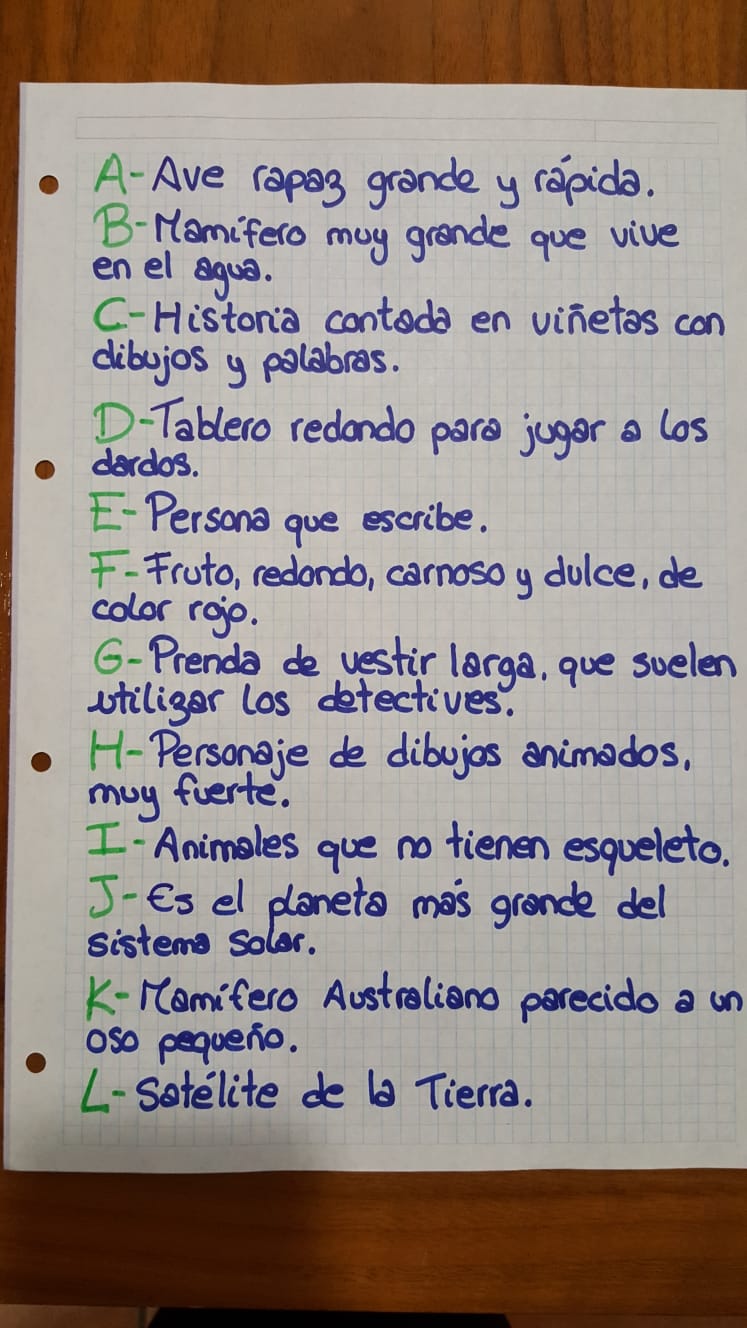 A-Ave rapaz grande y rápida.
B-Mamífero muy grande que vive
en el agua.
C-Historia contada en viñetas con
dibujos y palabras.
D-Tablero redondo para jugar a los
dardos.
E-Persona que escribe.
F-Fruto, redondo, carnoso y dulce, de
color rojo.
G-Prenda de vestir larga, que suelen
utilizar los detectives.
H-Personaje de dibujos animados,
muy fuerte.
I-Animales que no tienen esqueleto.
J-Es el planeta más grande del
sistema Solar.
K-Mamífero Australiano parecido a un
oso pequeño.
L-Satélite de la Tierra.